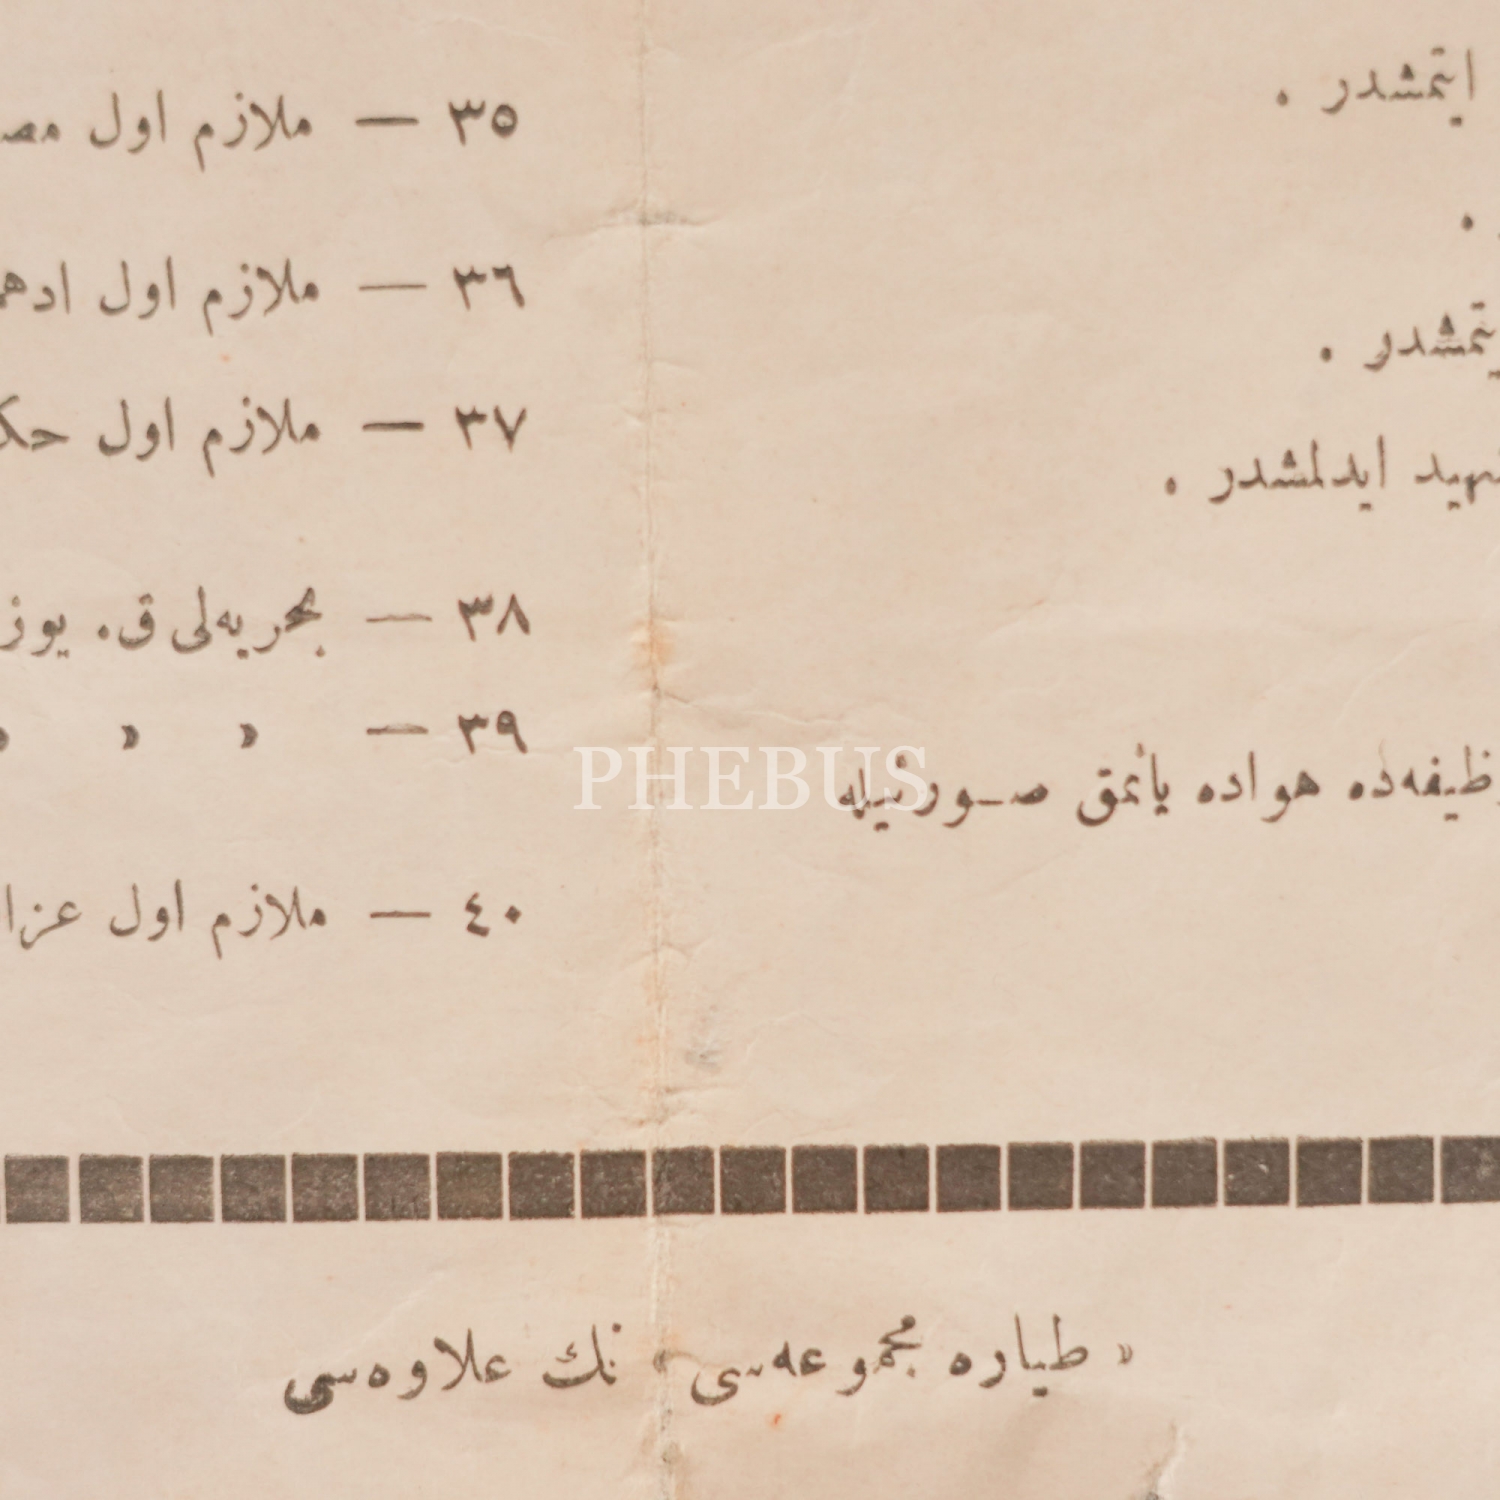 ایتمشدر .
.
یتمشدر .
شهید ایدلمشدر .
وظیفه‌ده هواده یانمق صورتیله
٣٥ — ملازم اول مص
٣٦ — ملازم اول ادهم
٣٧ — ملازم اول حک
٣٨ — بحریه‌لی ق. یوز
٣٩ — » » »
٤٠ — ملازم اول عزا
« طیاره مجموعه‌سی » نك علاوه‌سی
PHEBUS